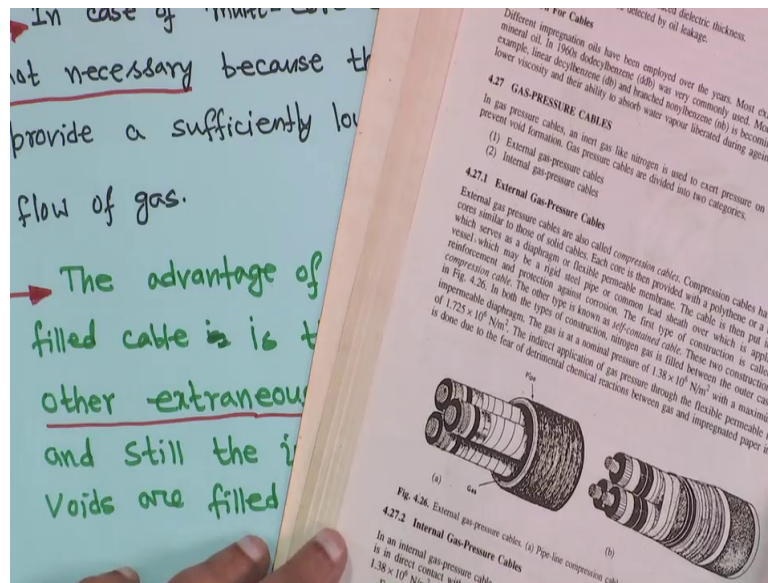 In case of
not necessary because th
provide a sufficiently lo
flow of gas.
The advantage of
filled cable is is t
other extraneou
and still the i
Voids are filled
dielectric thickness.
detected by oil leakage.
For Cables
Different impregnation oils have been employed over the years. Most
mineral oil. In 1960s dodecylbenzene (ddb) was very commonly used.
example, linear decylbenzene (db) and branched nonylbenzene (nb) is becomin
lower viscosity and their ability to absorb water vapour liberated during agein
4.27 GAS-PRESSURE CABLES
In gas pressure cables, an inert gas like nitrogen is used to exert pressure on
prevent void formation. Gas pressure cables are divided into two categories.
(1) External gas-pressure cables
(2) Internal gas-pressure cables
4.27.1 External Gas-Pressure Cables
External gas pressure cables are also called compression cables. Compression cables ha
cores similar to those of solid cables. Each core is then provided with a polythene or a
which serves as a diaphragm or flexible permeable membrane. The cable is then put i
vessel, which may be a rigid steel pipe or common lead sheath over which is appl
reinforcement and protection against corrosion. The first type of construction is calle
compression cable. The other type is known as self-contained cable. These two construction
in Fig. 4.26. In both the types of construction, nitrogen gas is filled between the outer cas
impermeable diaphragm. The gas is at a nominal pressure of 1.38 × 10⁶ N/m² with a maximu
of 1.725 × 10⁶ N/m². The indirect application of gas pressure through the flexible permeable
is done due to the fear of detrimental chemical reactions between gas and impregnated paper i
Pipe
Gas
(a)
(b)
Fig. 4.26. External gas-pressure cables. (a) Pipe-line compression cabl
4.27.2 Internal Gas-Pressure Cables
In an internal gas-pressure cable
is in direct contact with
1.38 × 10⁶ N/